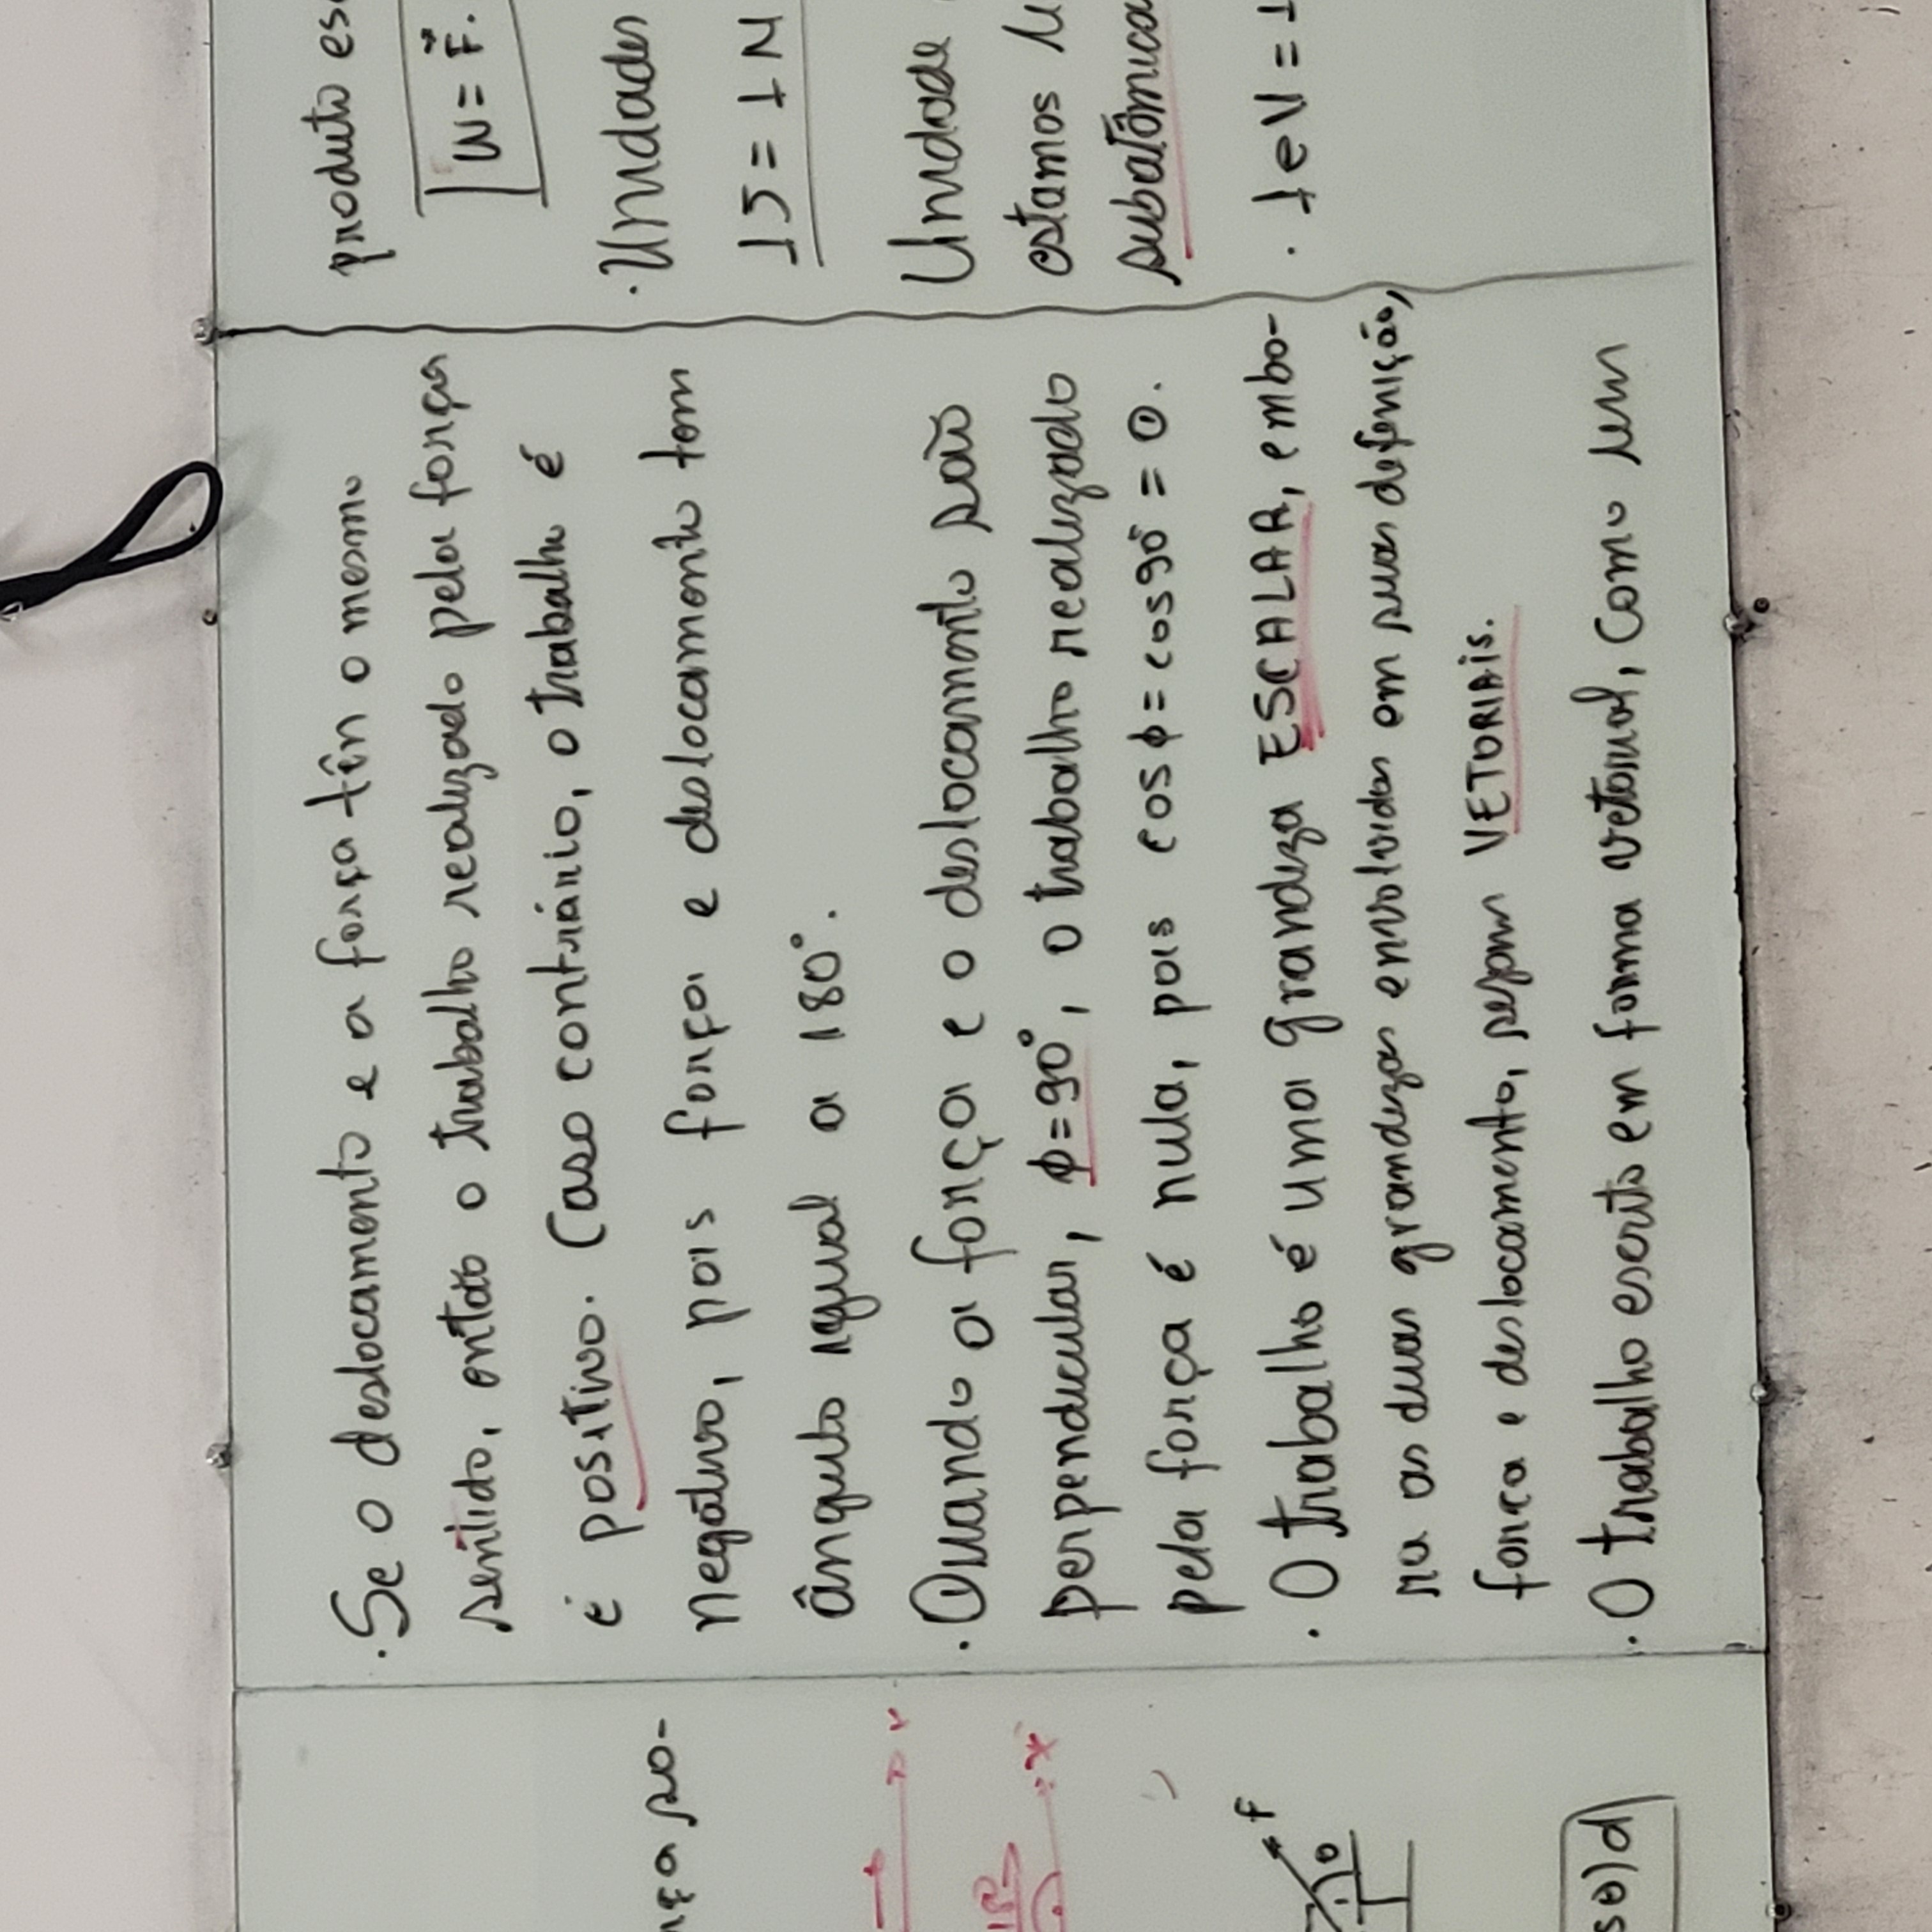 nça so-
F
sθ)d
. Se o deslocamento e a força tên o mesmo
sentido, então o trabalho realizado pela força
é positivo. Caso contrário, o trabalho é
negativo, pois força e deslocamento tem
ângulo igual a 180°.
. Quando a força e o deslocamento são
perpendicular, ϕ=90°, o trabalho realizado
pela força é nula, pois cosϕ = cos90° = 0.
. O trabalho é uma grandeza ESCALAR, embo-
ra as duas grandezas envolvidas em suas definição,
força e deslocamento, sejam VETORIAIS.
. O trabalho escrito em forma vetorial, como um
produto es
W = F.
. Unidades
1J = 1N
Unidade
estamos
subatômica
. 1eV = 1